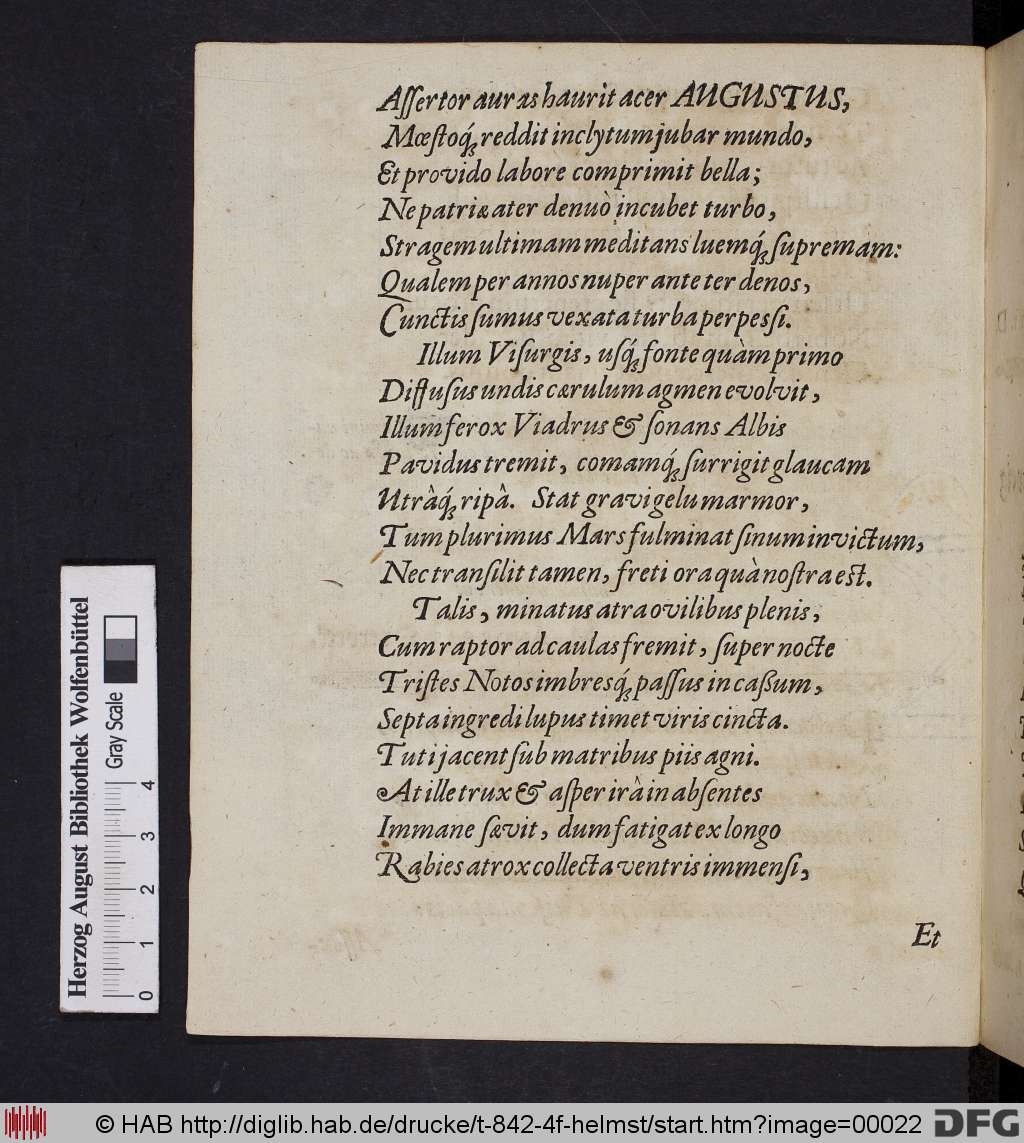 Aſſertor auras haurit acer AUGUSTUS,
Mœſtoq́; reddit inclytum jubar mundo,
Et provido labore comprimit bella;
Ne patriæ ater denuò incubet turbo,
Stragem ultimam meditans luemq́; ſupremam:
Qualem per annos nuper ante ter denos,
Cunctis ſumus vexata turba perpeſſi.
Illum Viſurgis, uſq́; fonte quàm primo
Diffuſus undis cærulum agmen evolvit,
Illum ferox Viadrus & ſonans Albis
Pavidus tremit, comamq́; ſurrigit glaucam
Utrâq́; ripâ. Stat gravi gelu marmor,
Tum plurimus Mars fulminat ſinum invictum,
Nec tranſilit tamen, freti ora quà noſtra est.
Talis, minatus atra ovilibus plenis,
Cum raptor ad caulas fremit, ſuper nocte
Triſtes Notos imbresq́; paſſus in caßum,
Septa ingredi lupus timet viris cincta.
Tuti jacent ſub matribus piis agni.
At ille trux & aſper irâ in abſentes
Immane ſævit, dum fatigat ex longo
Rabies atrox collecta ventris immenſi,
Et
Herzog August Bibliothek Wolfenbüttel
Gray Scale
0 1 2 3 4
© HAB http://diglib.hab.de/drucke/t-842-4f-helmst/start.htm?image=00022
DFG